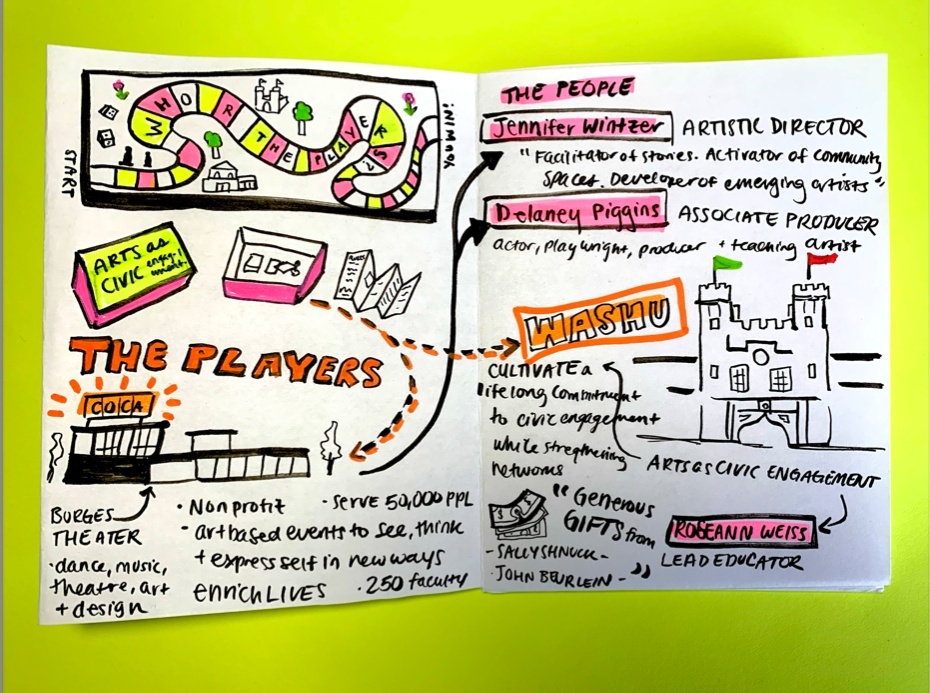 START
WHO R THE PLAYERS
ARTS as
CIVIC engage
ment.
THE PLAYERS
COCA
BURGES
THEATER
· dance, music,
theatre, art
+ design
· Nonprofit
· serve 50,000 PPL
- art based events to see, think
+ express self in new ways
enrich LIVES
· 250 faculty
THE PEOPLE
Jennifer Wintzer
ARTISTIC DIRECTOR
"Facilitator of stories. Activator of community
Spaces. Developer of emerging artists"
Delaney Piggins
ASSOCIATE PRODUCER
actor, playwright, producer + teaching artist
WASHU
CULTIVATE a
lifelong commitment
to civic engagement
while stregthening
networks
ARTS as CIVIC ENGAGEMENT
"Generous
GIFTS from
- SALLY SHNUCK -
- JOHN BEURLEIN - "
ROSEANN WEISS
LEAD EDUCATOR